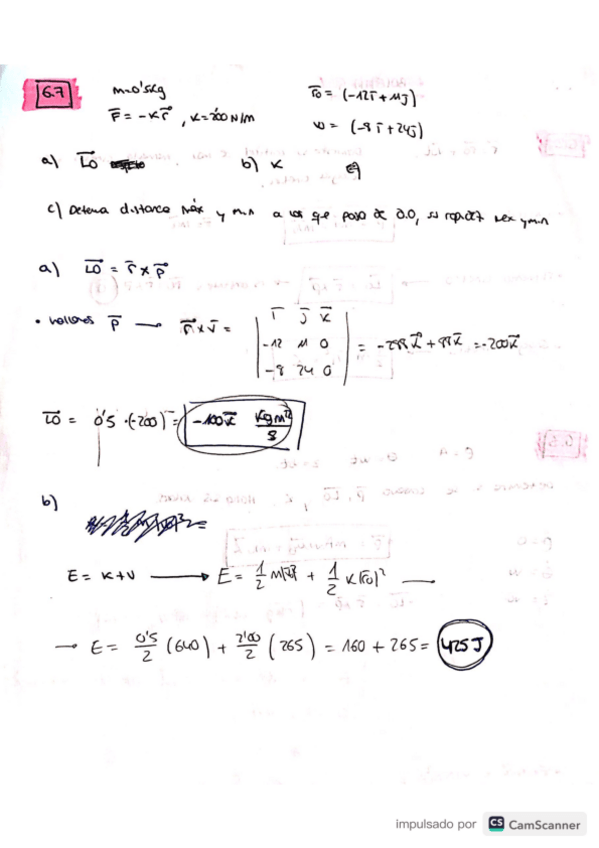 6.7 m=0'5kg r̄o = (-12ī + 11j)
F̄ = -Kr̄ , K=2'00 N/m vo = (-8ī+24j)
a) L̄O b) K
c) Determa distancia máx y min a los que pasa de O.O, su rapidez máx y min
a) L̄O = r̄ x p̄
• hallamos p̄ → r̄xv̄ = | ī j̄ k̄ | = -288k̄ + 88k̄ = -200k̄
-12 11 0
-8 24 0
L̄O = 0'5 · (-200) = -100k̄ kgm²/s
b)
E = K+V → E = 1/2 m|v̄|² + 1/2 K|ro|² —
→ E = 0'5/2 (640) + 2'00/2 (265) = 160 + 265 = 425J
impulsado por CS CamScanner